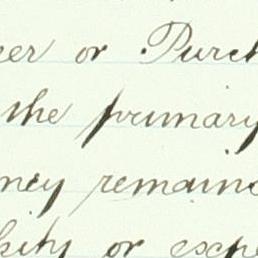 or Purch
the primary
ney remain
or exp